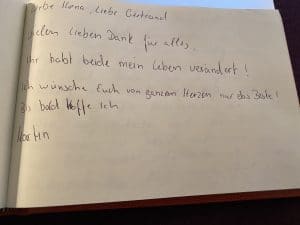 Liebe Ilona, Liebe Gertraud
vielen lieben Dank für alles.
Ihr habt beide mein Leben verändert!
Ich wünsche Euch von ganzem Herzen nur das Beste!
Bis bald hoffe Ich
Martin